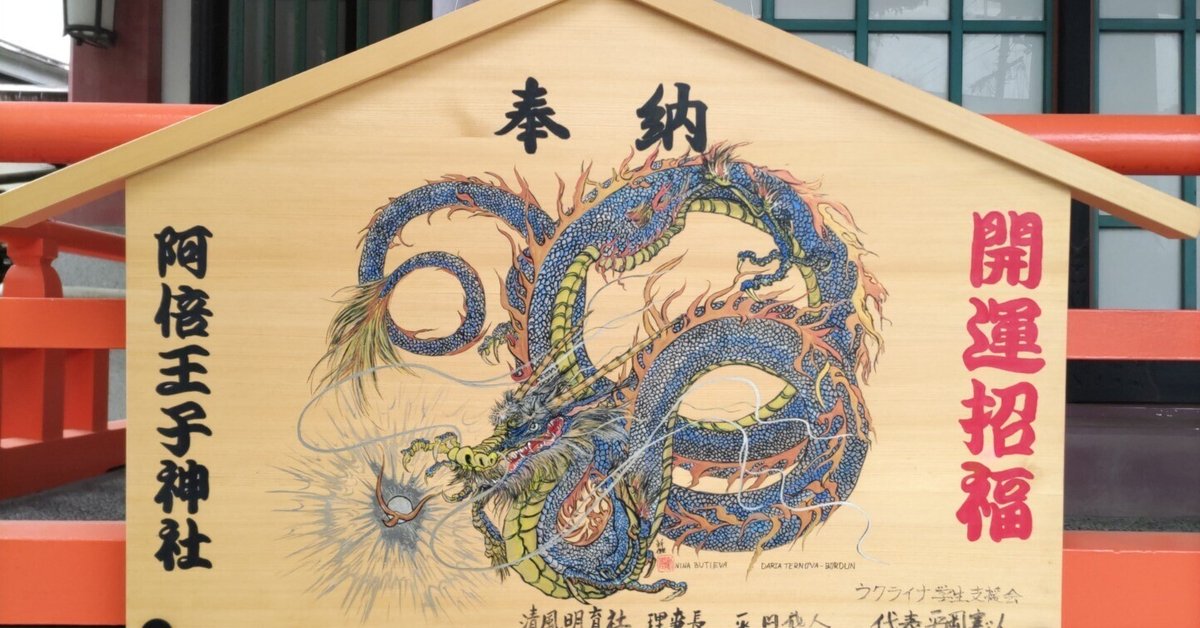 奉納
開運招福
阿倍王子神社
NINA BUTIEVA
DARIA TERNOVA-BORDUN
ウクライナ学生支援会
清風明育社 理事長
代表